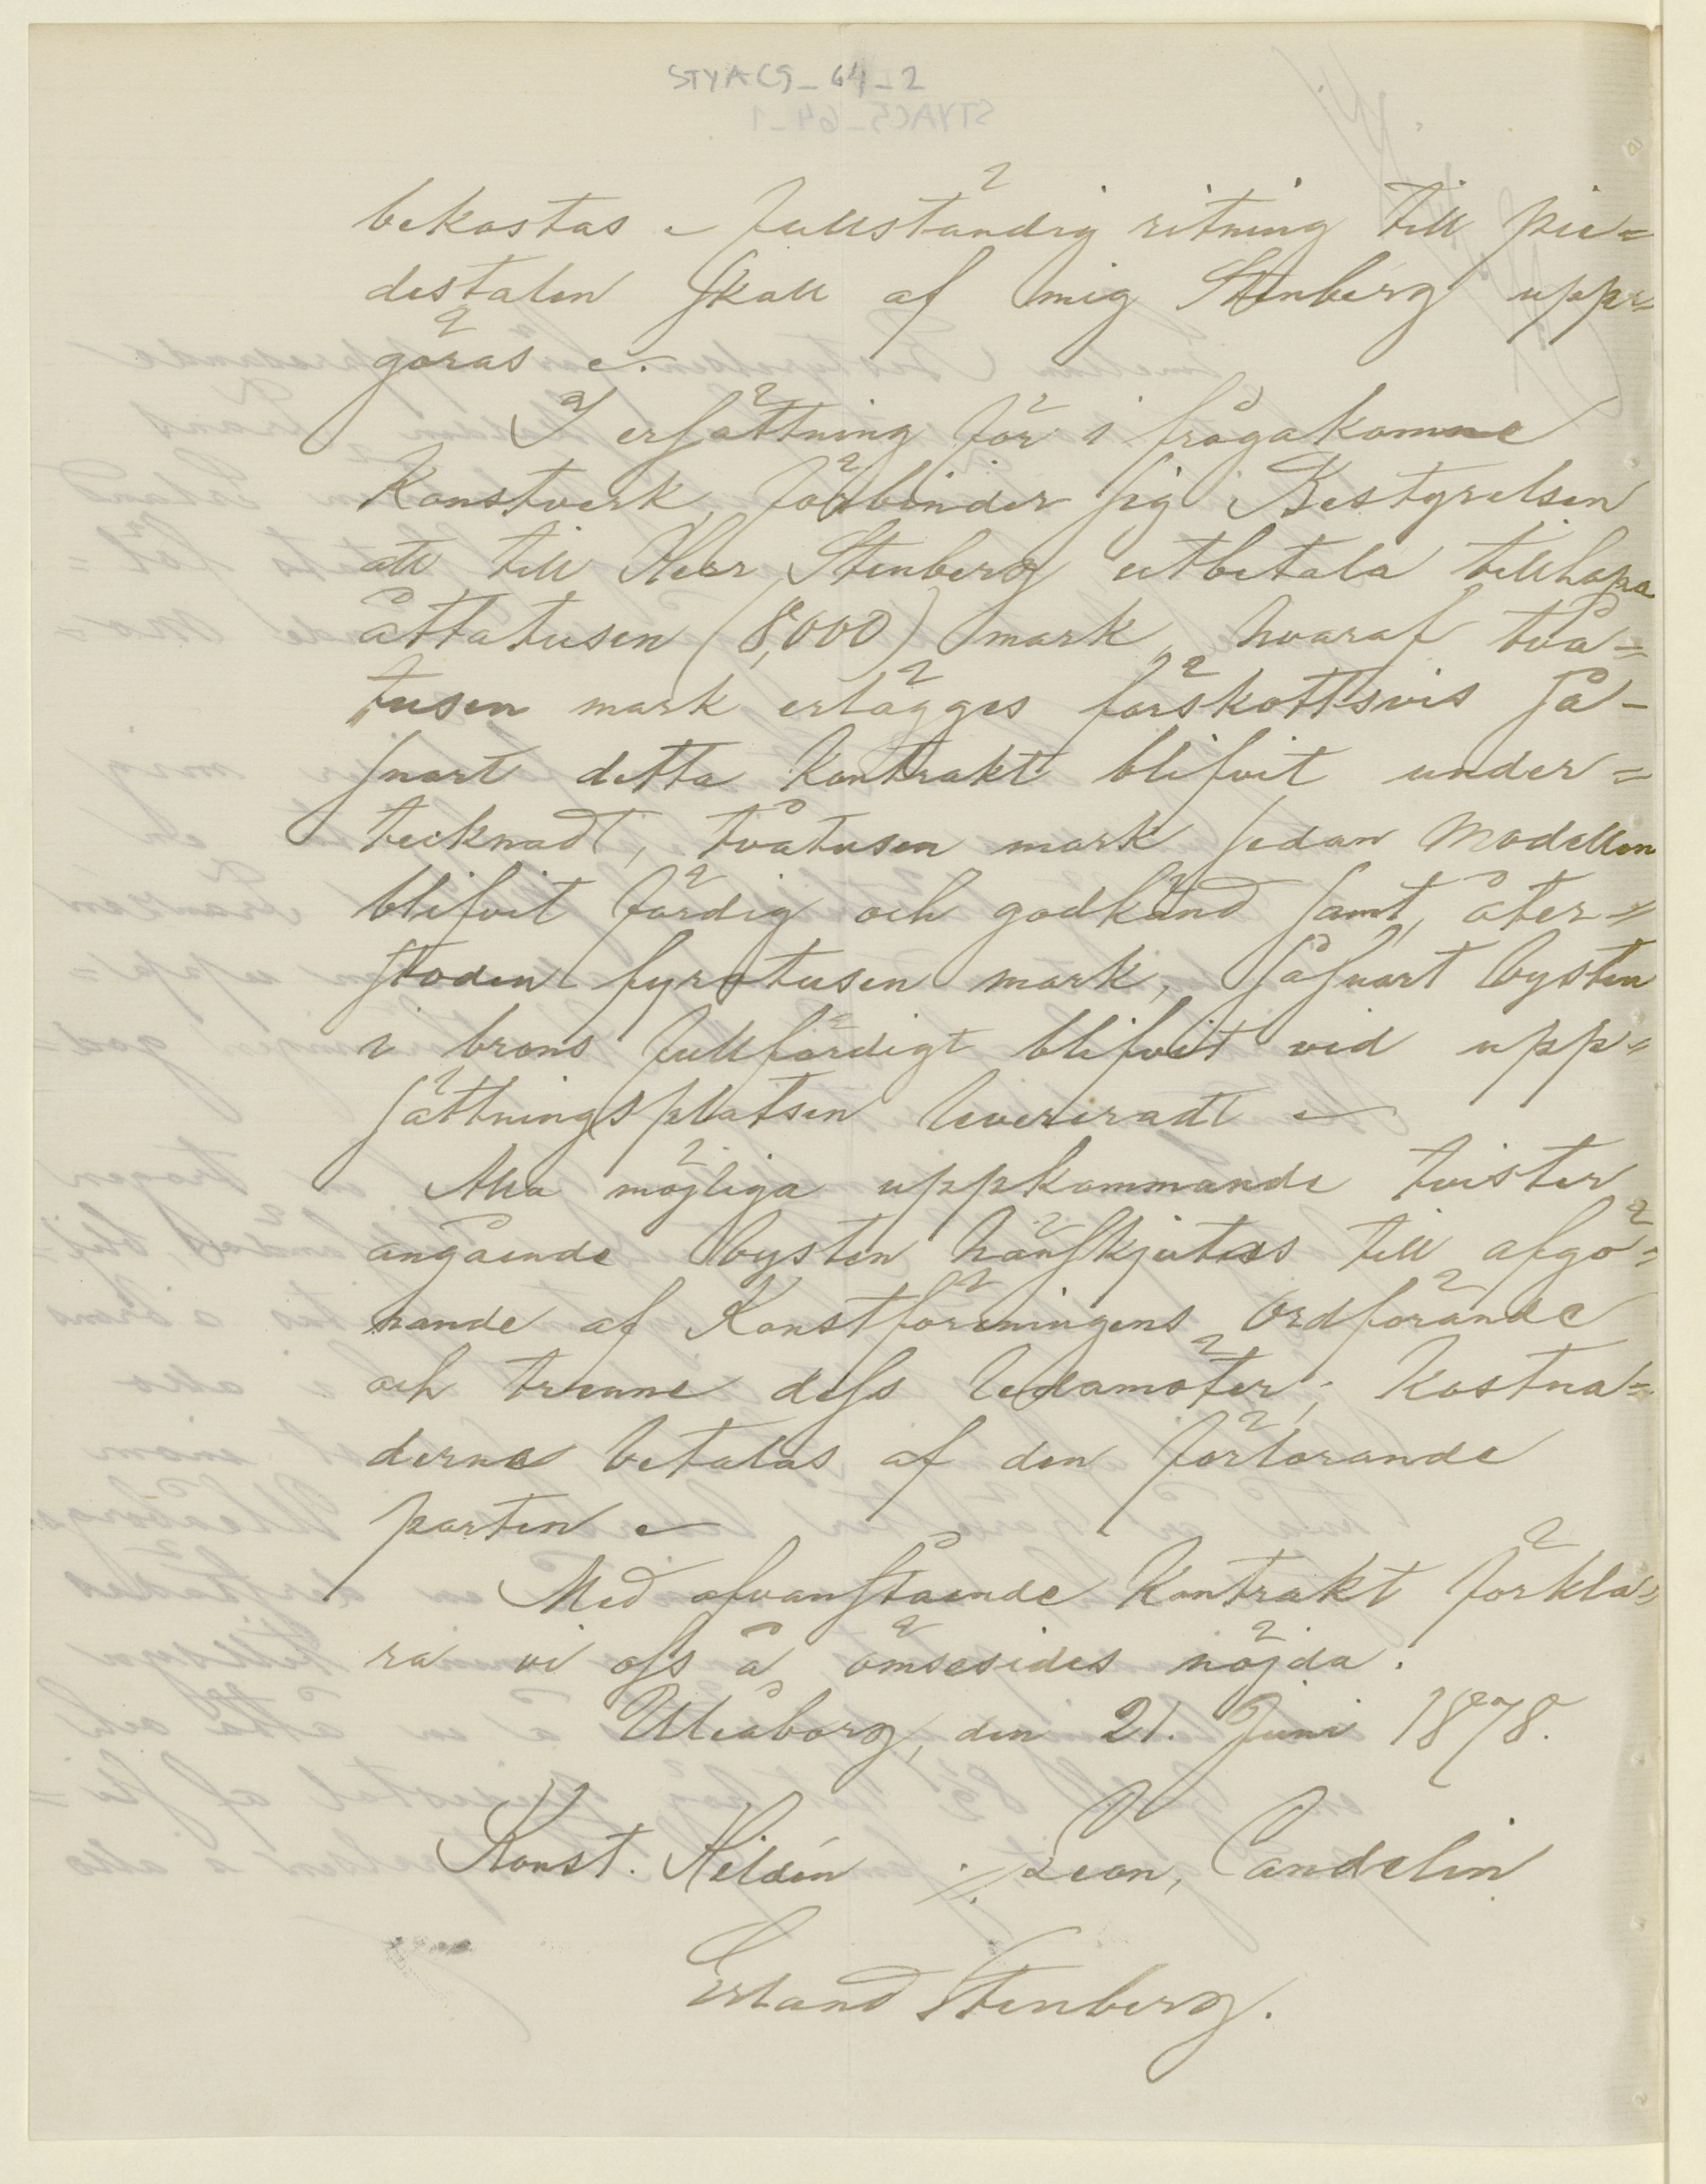 STYAC5_64_2
STYAC5_64_1
bekostas. Fullständig ritning till pie=
destalen skall af mig Stenberg upp=
göras.
I ersättning för i frågakomne
Konstverk, förbinder sig Bestyrelsen
att till Herr Stenberg utbetala tillhopa
åttatusen (8,000) mark, hvaraf två=
tusen mark erlägges förskottsvis så-
snart detta Kontrakt blifvit under=
tecknadt, tvåtusen mark sedan Modellen
blifvit färdig och godkänd samt, åter=
stoden fyratusen mark, såsnart bysten
i brons fullfärdigt blifvit vid upp=
sättningsplatsen levereradt
Alla möjliga uppkommande tvister
angående bysten hänskjutes till afgö=
rande af Konstföreningens Ordförande
och trenne dess ledamöter; Kostna=
derna betalas af den förlorande
parten
Med ofvanstående Kontrakt förkla=
ra vi oss å ömsesides nöjda.
Uleåborg, den 21. Juni 1878.
Konst. Heldén ·/. Leon, Candelin
Erland Stenberg.